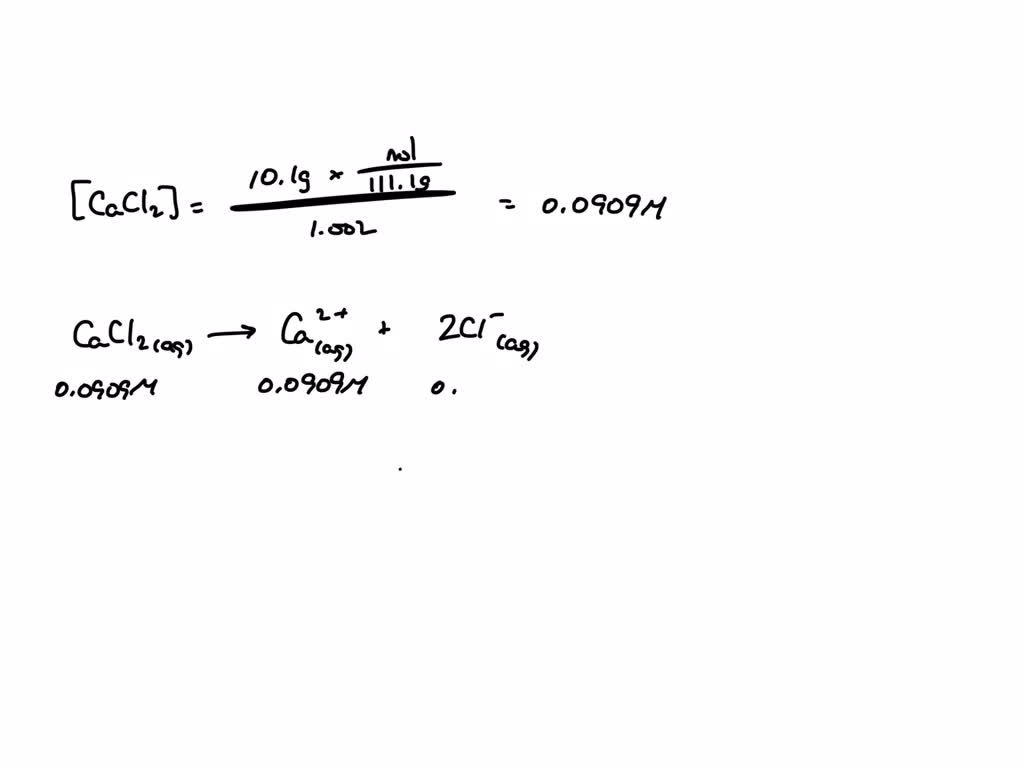 [CaCl₂] = (10.1g × mol/111.1g) / 1.00L = 0.0909M
CaCl₂(aq) → Ca²⁺(aq) + 2Cl⁻(aq)
0.0909M 0.0909M 0.